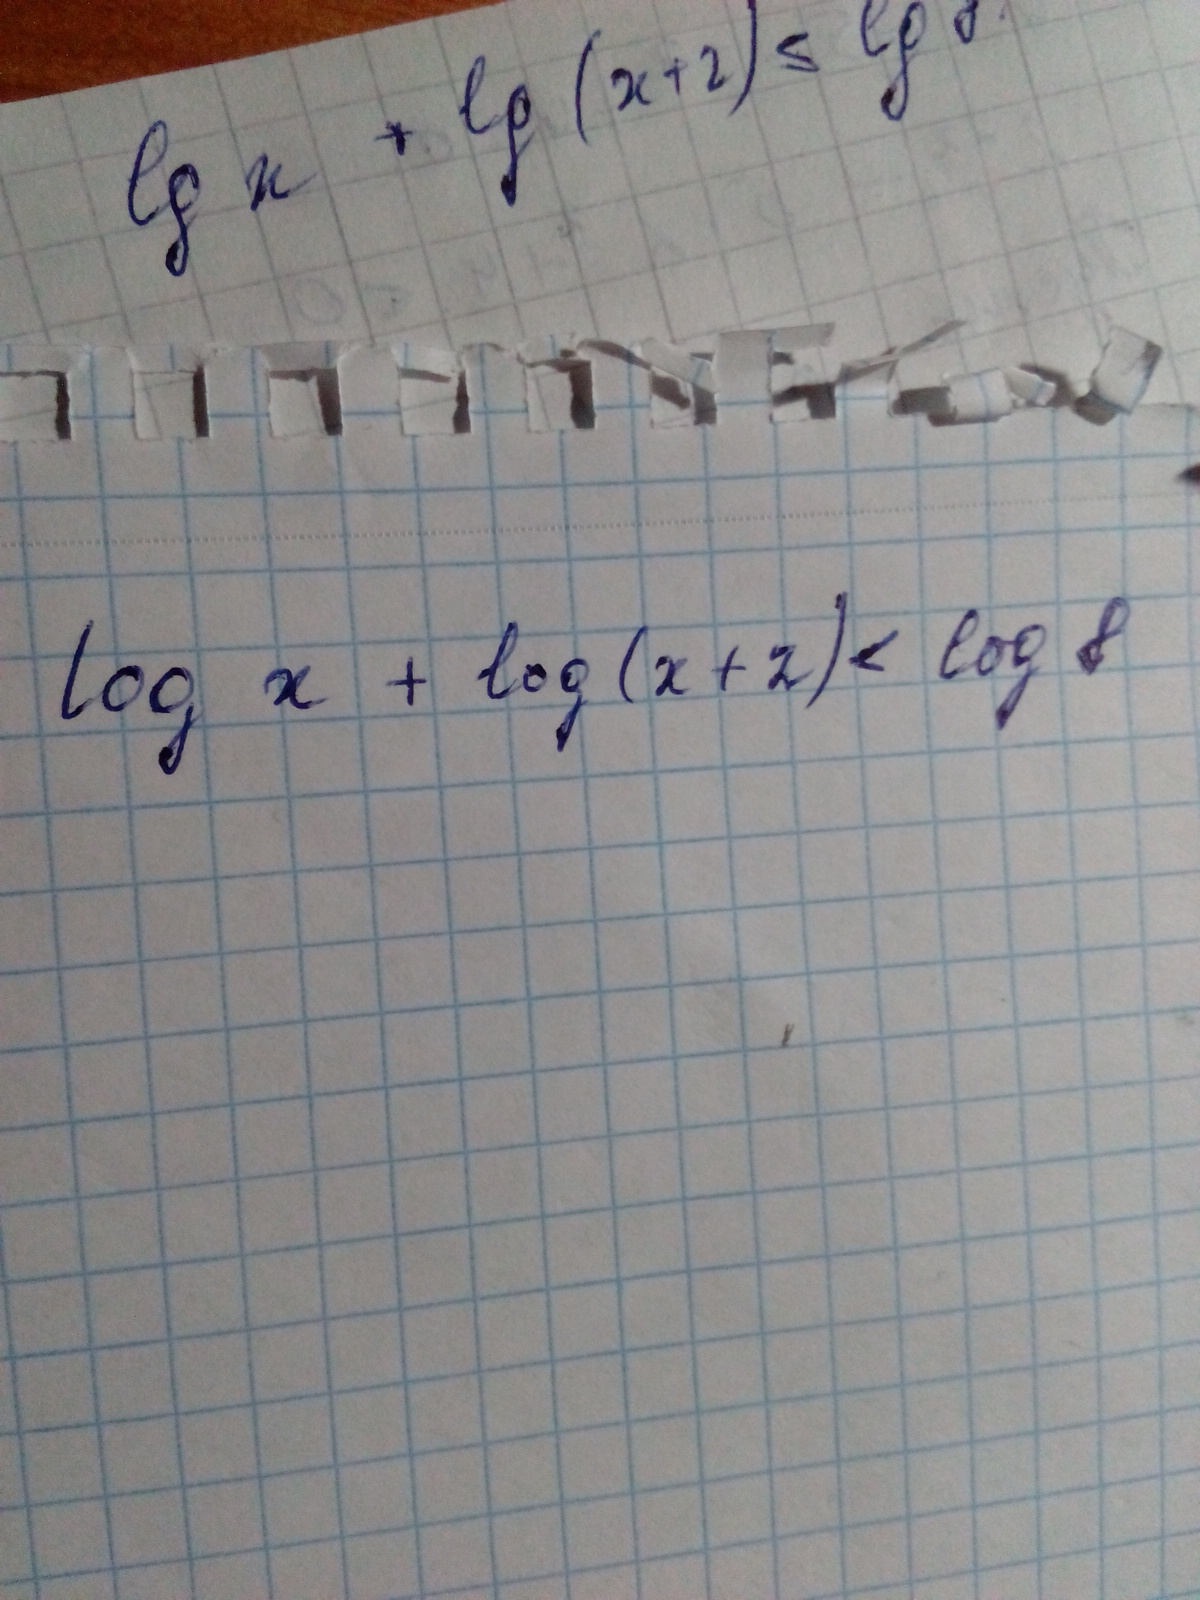 lg x + lg (x+2) ≤ lg 8.
log x + log (x+2) < log 8